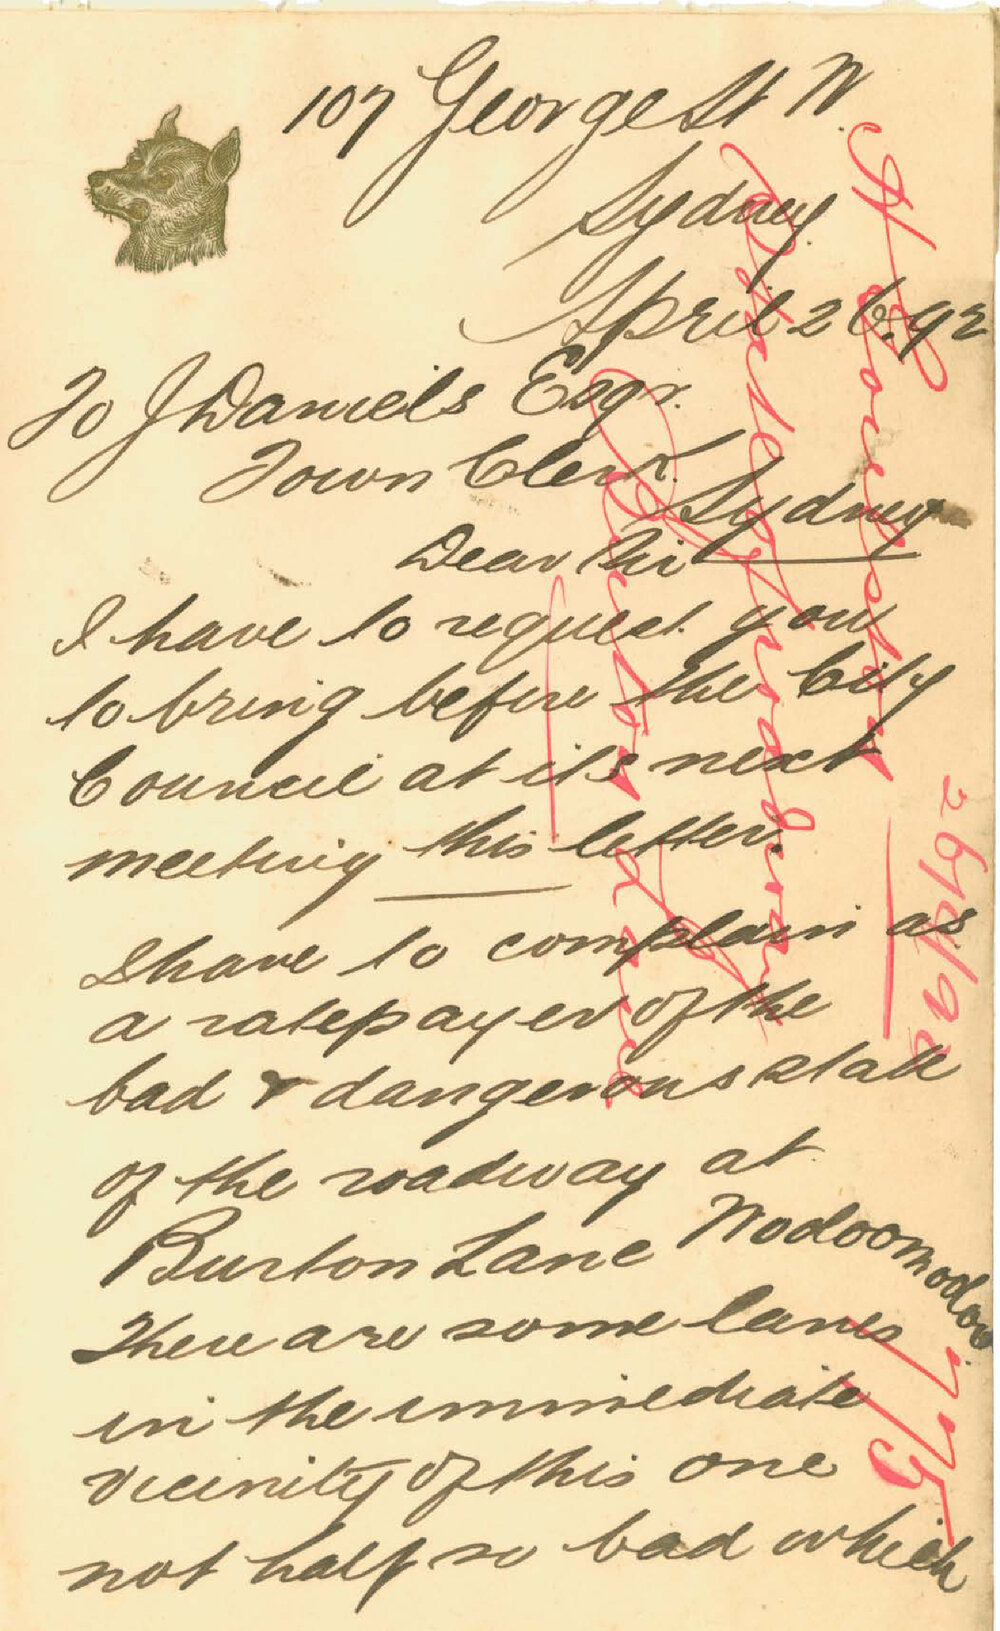 107 George St N.
Sydney.
April 26. 92
To J Daniels Esqr.
Town Clerk.
Sydney
Dear Sir
I have to request you
to bring before the City
Council at its next
meeting this letter.
I have to complain as
a ratepayer of the
bad & dangerous state
of the roadway at
Burton Lane Wooloomooloo
There are some lanes
in the immediate
vicinity of this one
not half so bad which
state of roadway
Burton Lane
26/4/92
775